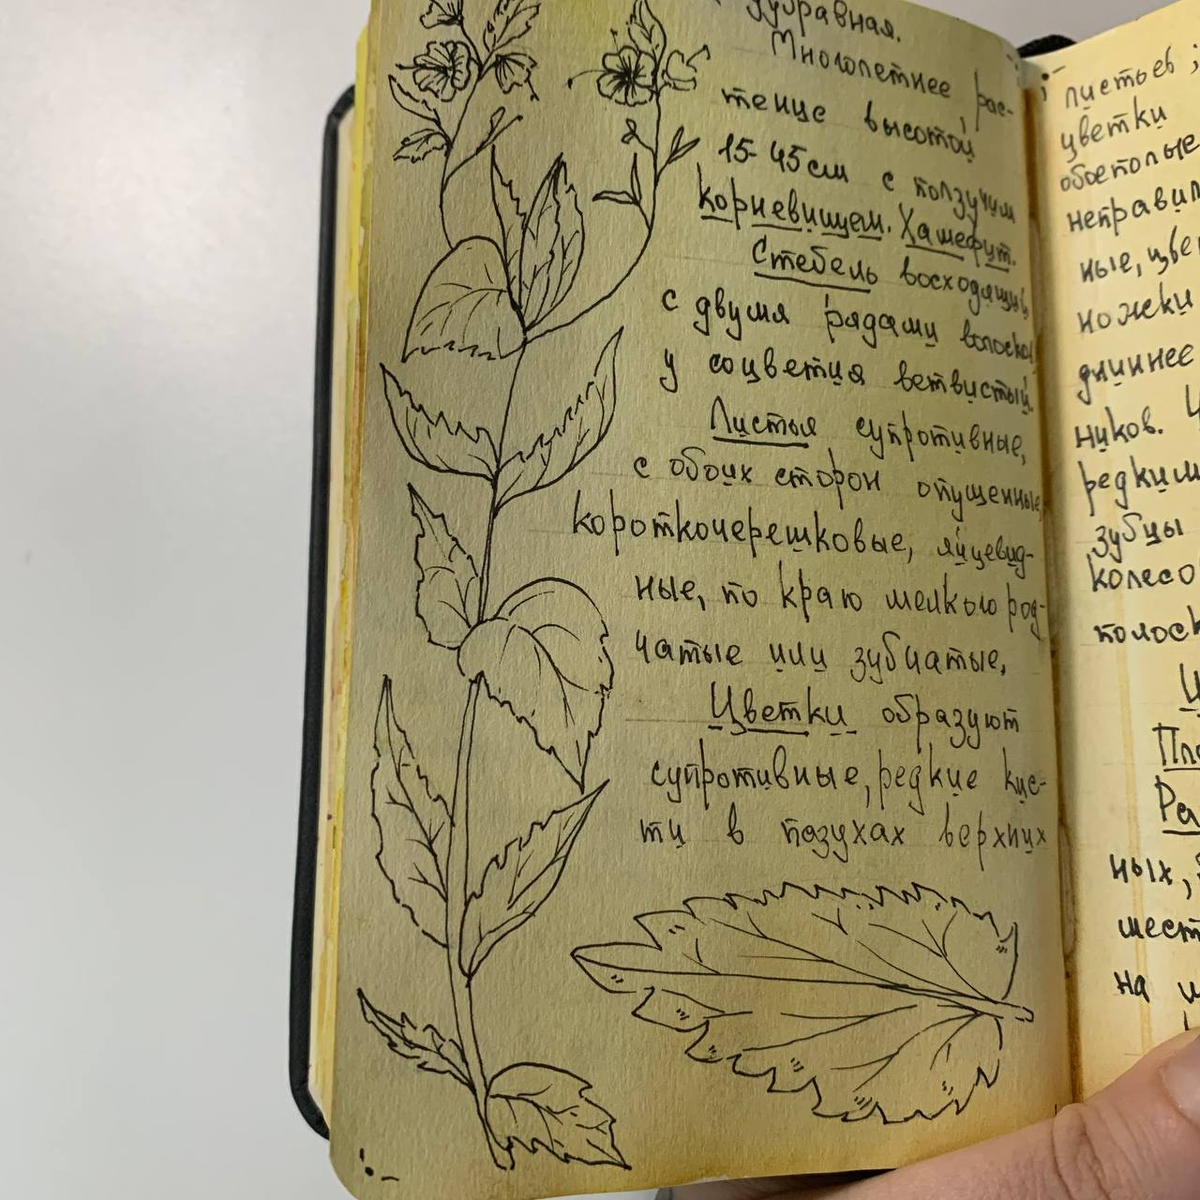 дубравная.
Многолетнее, рас-
тение высотой
15-45см с ползучим
корневищем. Хамефит.
Стебель восходящий,
с двумя рядами волосков,
у соцветия ветвистый.
Листья супротивные,
с обоих сторон опущенные,
короткочерешковые, яйцевид-
ные, по краю мелкогород-
чатые или зубчатые,
Цветки образуют
супротивные, редкие кис-
ти в пазухах верхних
листьев;
цветки
обоеполые
неправил
ные, цве
ножеки
длиннее
ников.
редким
зубцы
колесо
полоск
Пло
Ра
ных,
шест
на